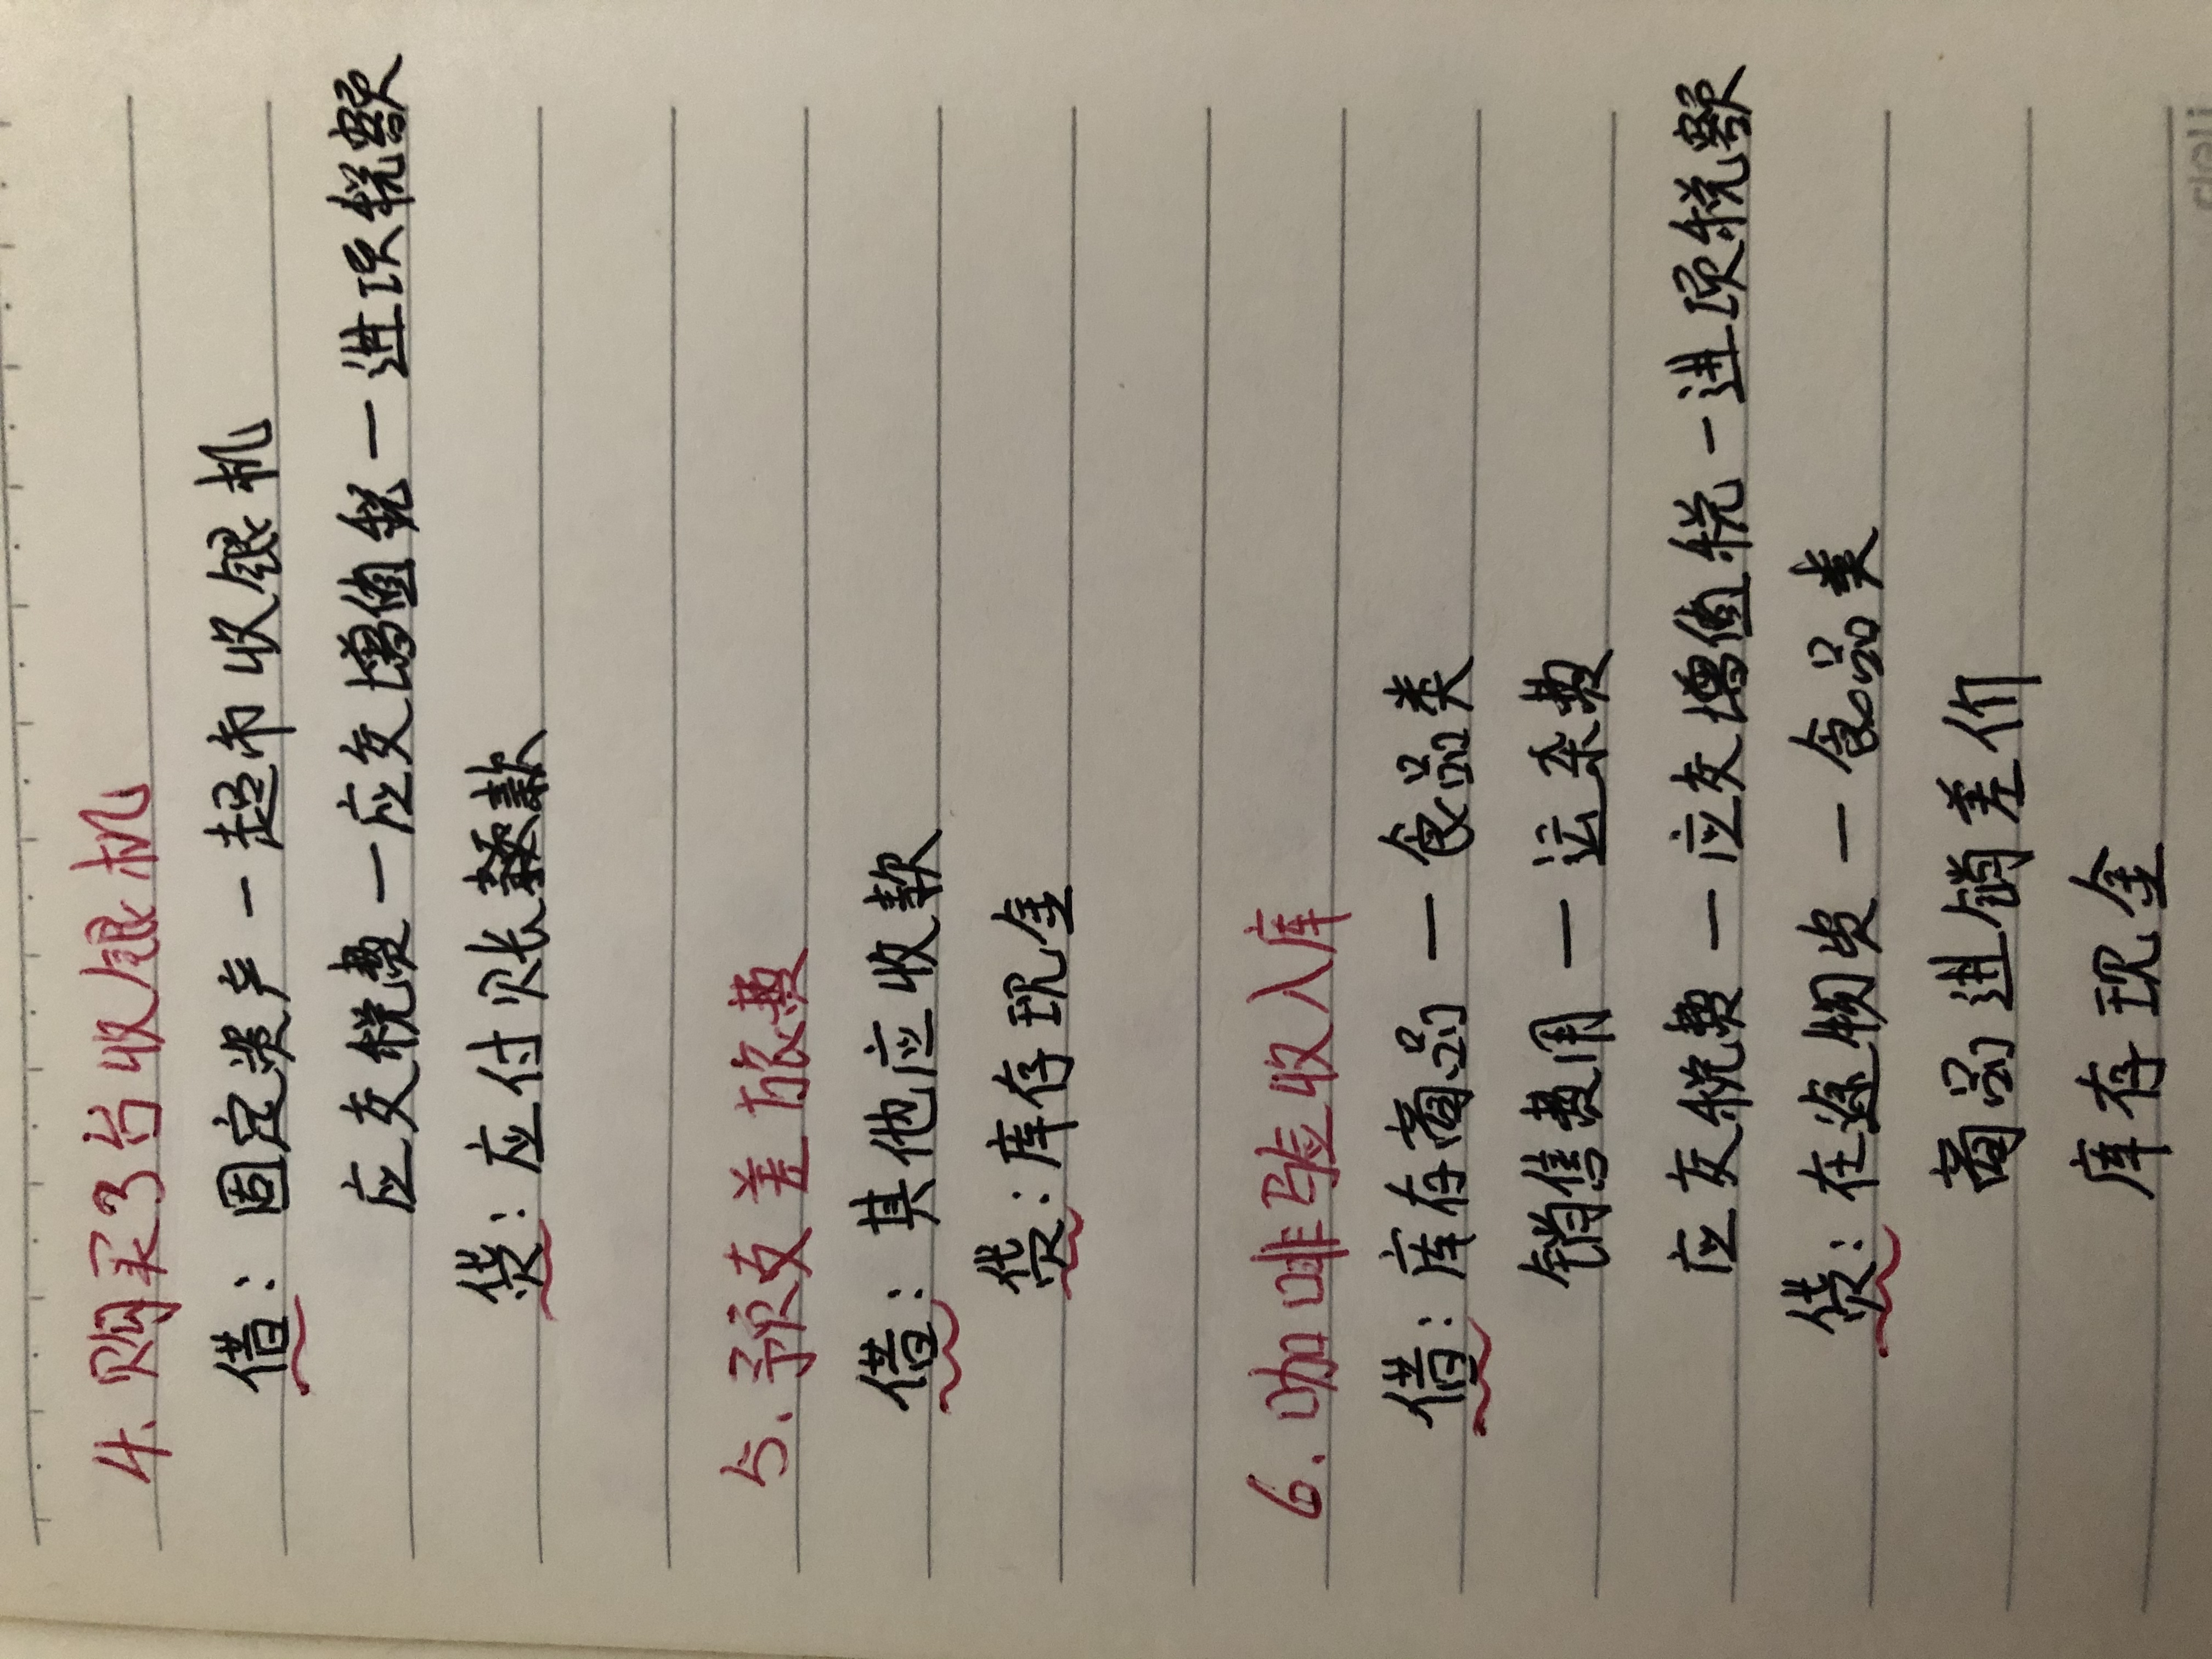 4.购买3台收银机
借：固定资产—超市收银机
应交税费—应交增值税—进项税额
贷：应付账款
5.预支差旅费
借：其他应收款
贷：库存现金
6.咖啡验收入库
借：库存商品—食品类
销售费用—运杂费
应交税费—应交增值税—进项税额
贷：在途物资—食品类
商品进销差价
库存现金
deli